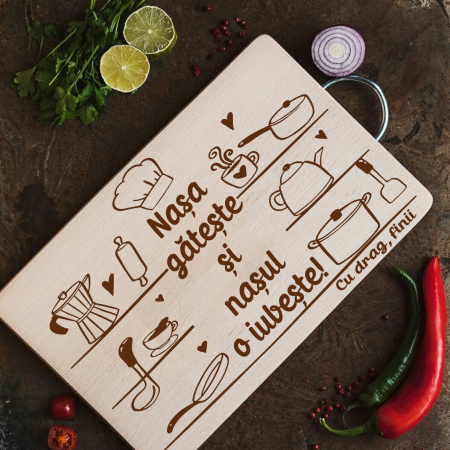 Nașa
gătește
și
nașul
o iubește!
Cu drag, finii